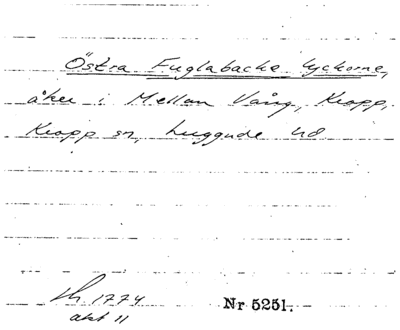 Östra Fuglabacke Lyckorne,
åker i Mellan Vång, Kropp,
Kropp sn, Luggude hd
Lh. 1774
akt 11
Nr 5251.